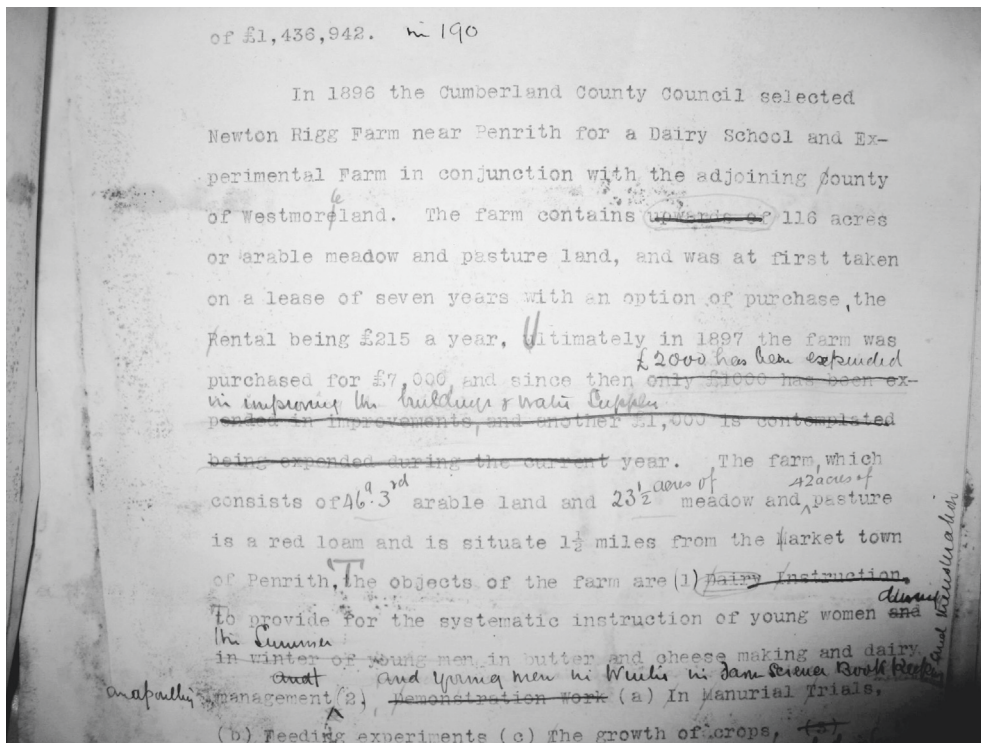 of £1,436,942. in 190
In 1896 the Cumberland County Council selected
Newton Rigg Farm near Penrith for a Dairy School and Ex-
perimental Farm in conjunction with the adjoining County
of Westmoreland. The farm contains upwards of 116 acres
or arable meadow and pasture land, and was at first taken
on a lease of seven years with an option of purchase, the
Rental being £215 a year, Ultimately in 1897 the farm was
£2000 has been expended
purchased for £7,000, and since then only £1000 has been ex-
in improving the buildings & water Supply
pended in improvements, and another £1,000 is contemplated
being expended during the current year. The farm, which
42 acres of
consists of 46a. 3rd arable land and 23½ acres of meadow and pasture
is a red loam and is situate 1½ miles from the Market town
of Penrith, The objects of the farm are (1) Dairy Instruction.
during
To provide for the systematic instruction of young women and
the Summer
in winter of young men in butter and cheese making and dairy
and and young men in Winter in Farm Science Book Keeping
management (2) Demonstration work (a) In Manurial Trials,
(b) Feeding experiments (c) The growth of crops, (3)